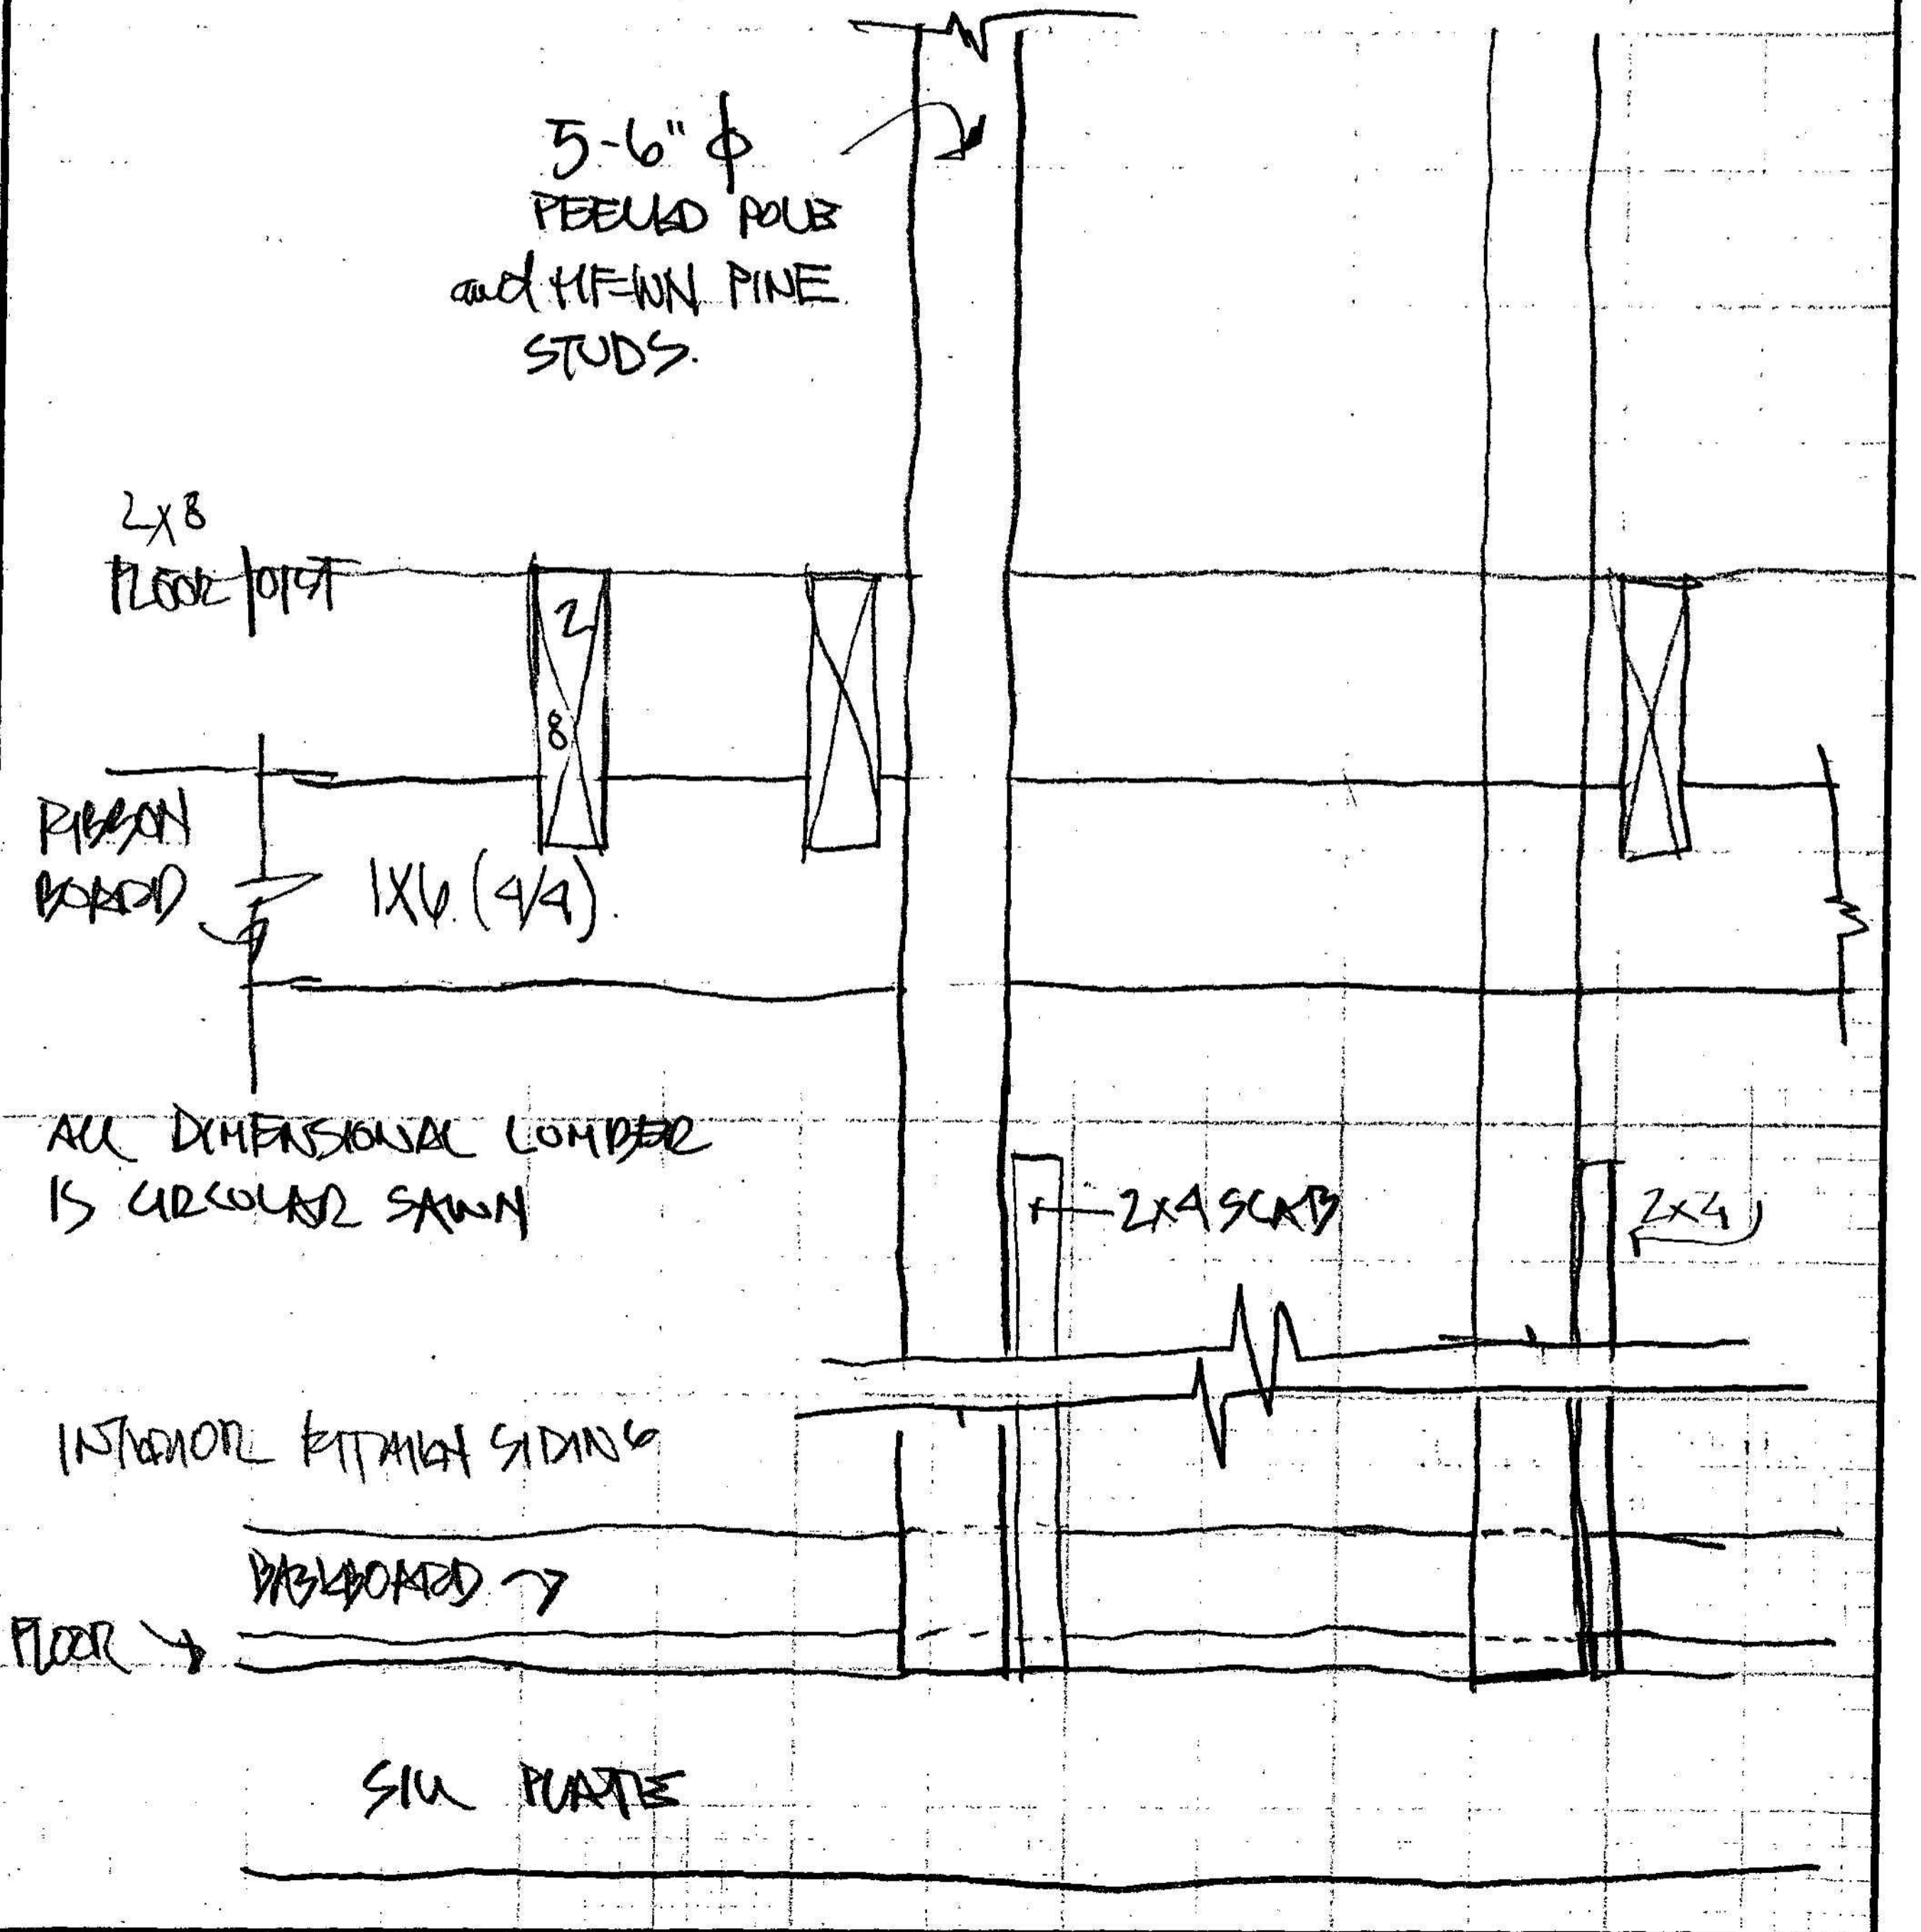 5-6" ϕ
PEELED POLE
and HEWN PINE
STUDS.
2X8
FLOOR JOIST
2
8
RIBBON
BOARD
1X6. (4/4).
ALL DIMENSIONAL LUMBER
IS CIRCULAR SAWN
2x4 SCAB
2x4
INTERIOR KITCHEN SIDING
BASEBOARD
FLOOR
SILL PLATE